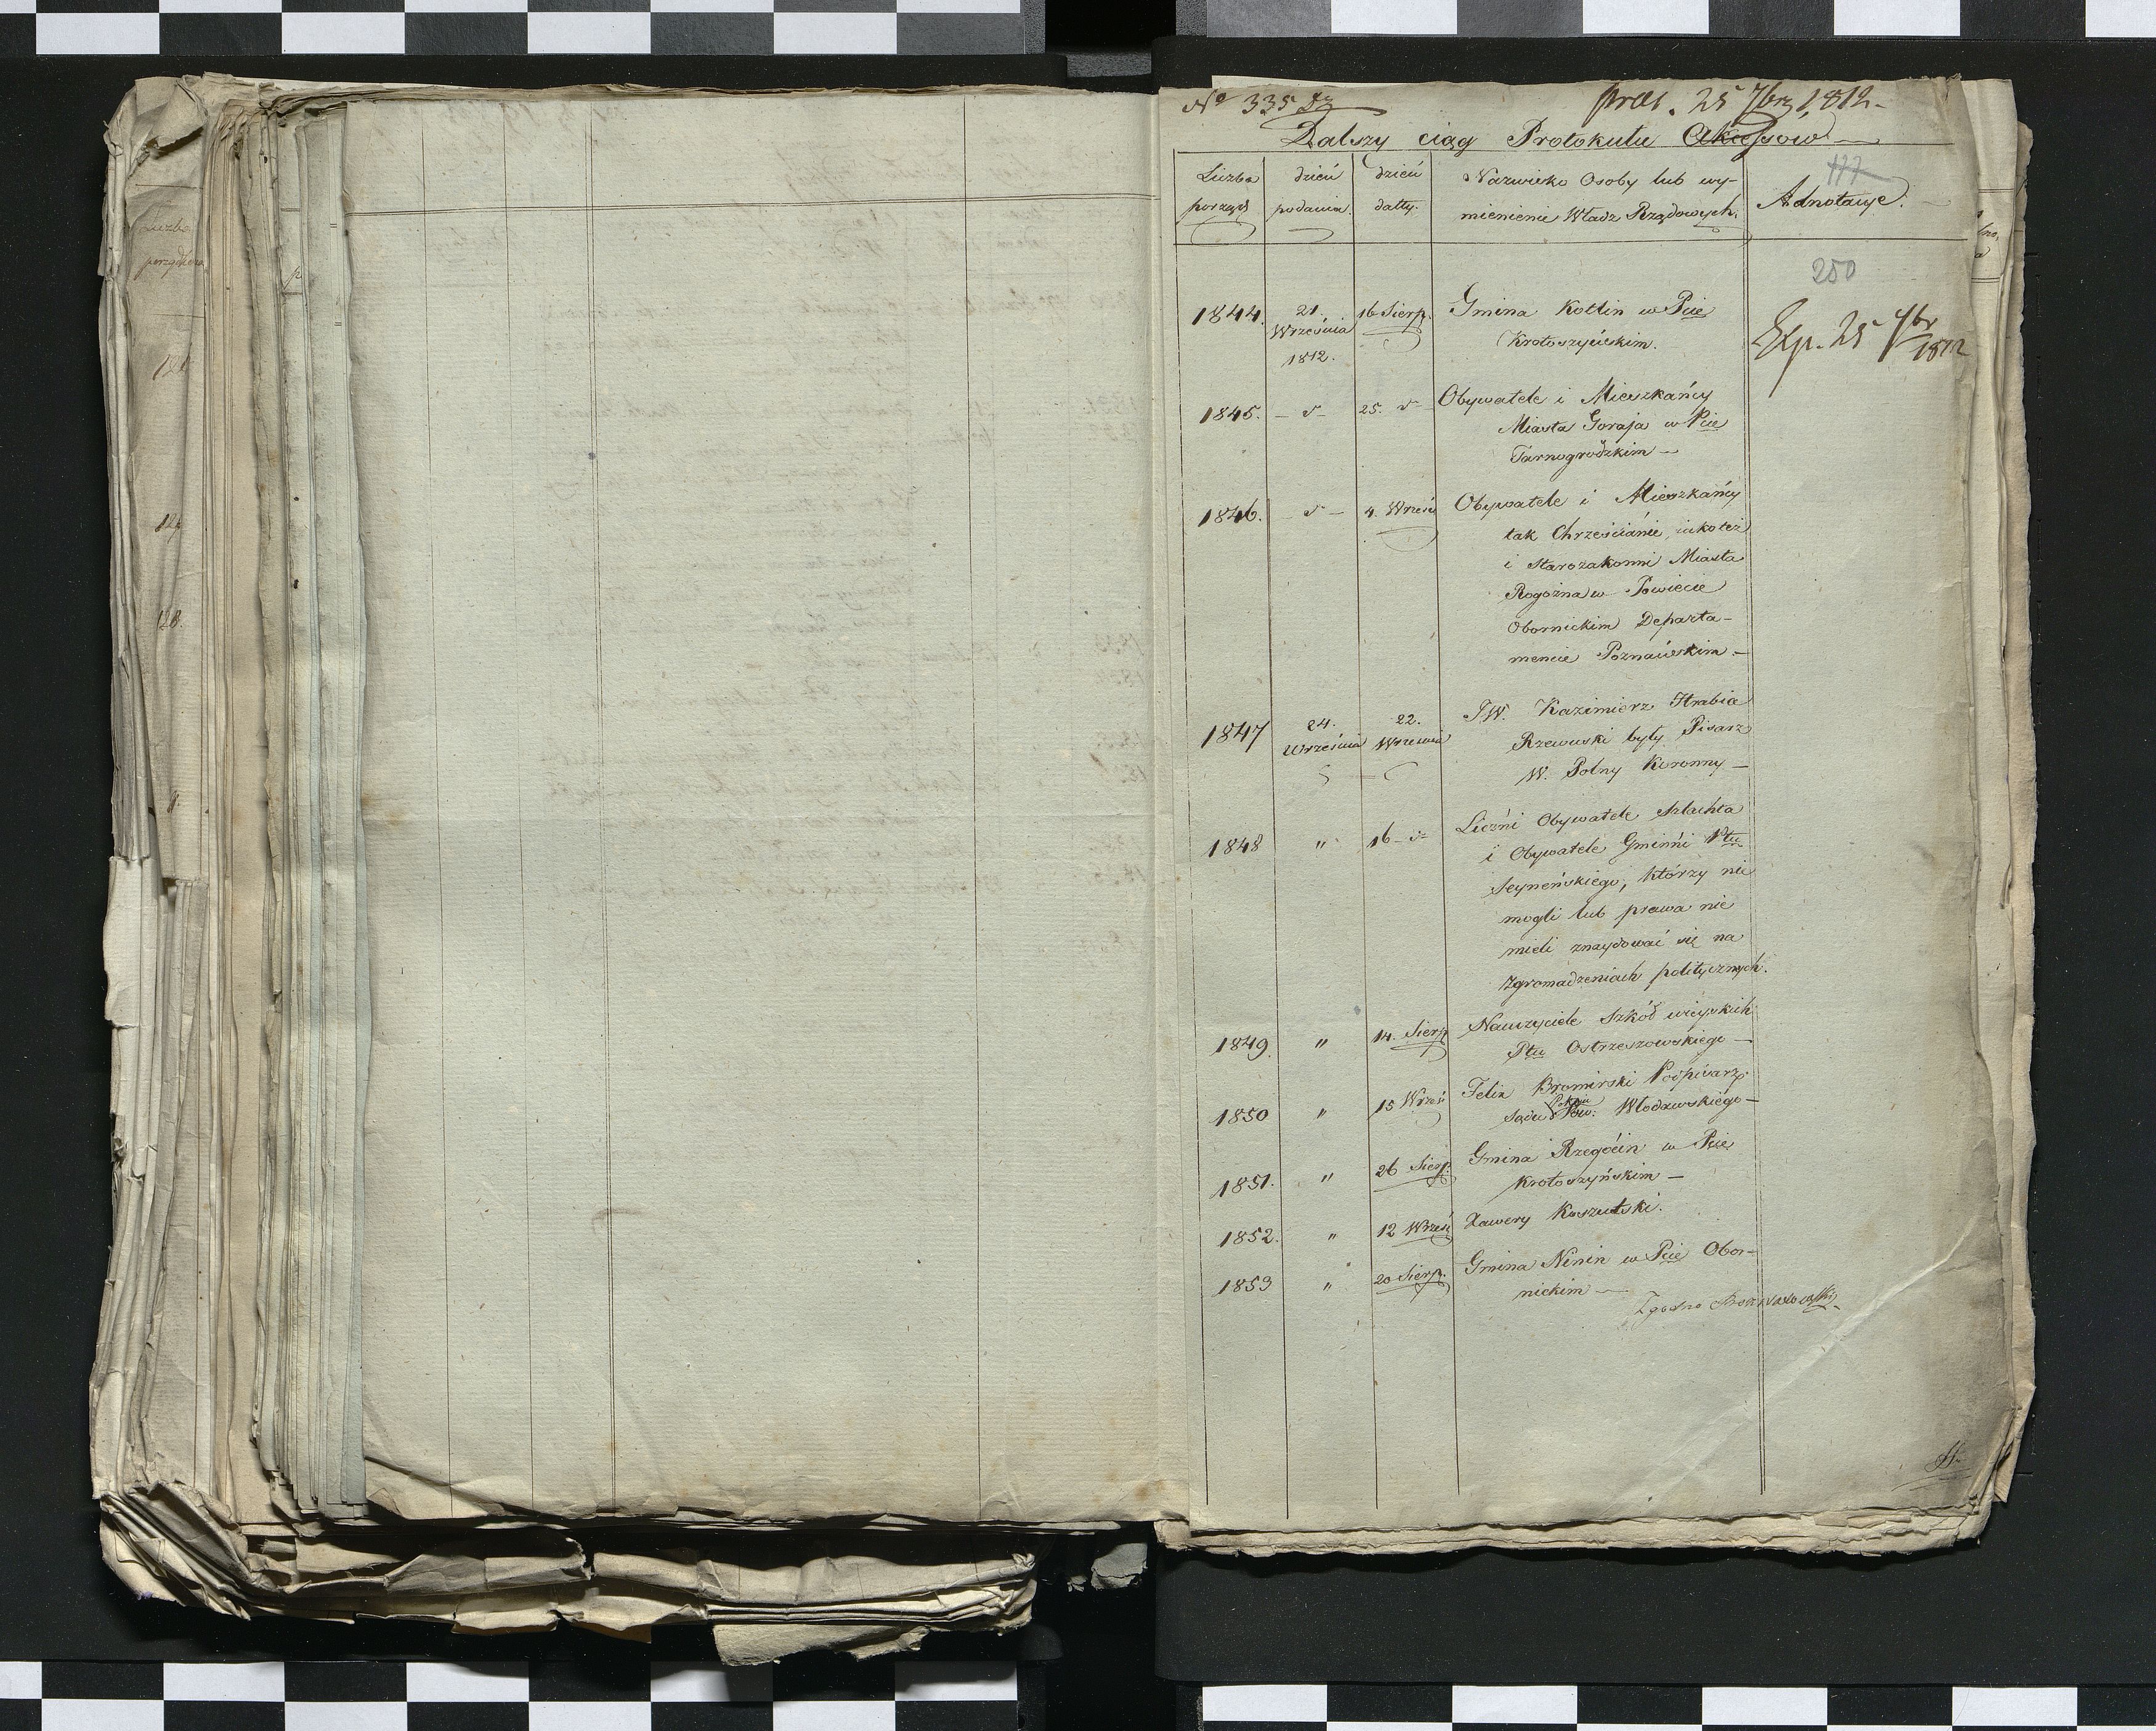 Nº 335 Dz
præs. 25 7brz 1812.
Dalszy ciąg Protokułu Akcessow
Liczba porząd
dzień podania.
dzień datty.
Nazwisko Osoby lub wy-
mienienie Władz Rządowych.
Adnotacye.
177
250
1844. 21. Września 1812. 16 Sierp. Gmina Kotlin w Pcie
Krotoszyńskim.
Exp. 25 7br 1812
1845. — d — 25. d — Obywatele i Mieszkańcy
Miasta Goraja w Pcie
Tarnogrodzkim —
1846. — d — 4. Wrześ Obywatele i Mieszkańcy
tak Chrześcianie, iako też
i Starozakonni Miasta
Rogoźna w Powiecie
Obornickim Departa-
mencie Poznańskim —
1847 24. Września 22. Września JW. Kazimierz Hrabia
Rzewuski były Pisarz
W. Polny Koronny —
1848 " 16 - d - Liczni Obywatele Szlachta
i Obywatele Gminni Ptu
Seyneńskiego, którzy nie
mogli lub prawa nie
mieli znaydować się na
Zgromadzeniach politycznych.
1849. " 14. Sierp Nauczyciele Szkół wieyskich
Ptu Ostrzeszowskiego —
1850 " 15 Wrześ Felix Bromirski Podpisarz
Sądu Pokoiu Pow. Włodawskiego —
1851. " 26 Sierp. Gmina Rzegocin w Pcie
Krotoszyńskim —
1852. " 12 Wrześ Xawery Koszutski.
1853 " 20 Sierp. Gmina Ninin w Pcie Obor-
nickim —
Zgodno
Liczba
porządkowa
128.